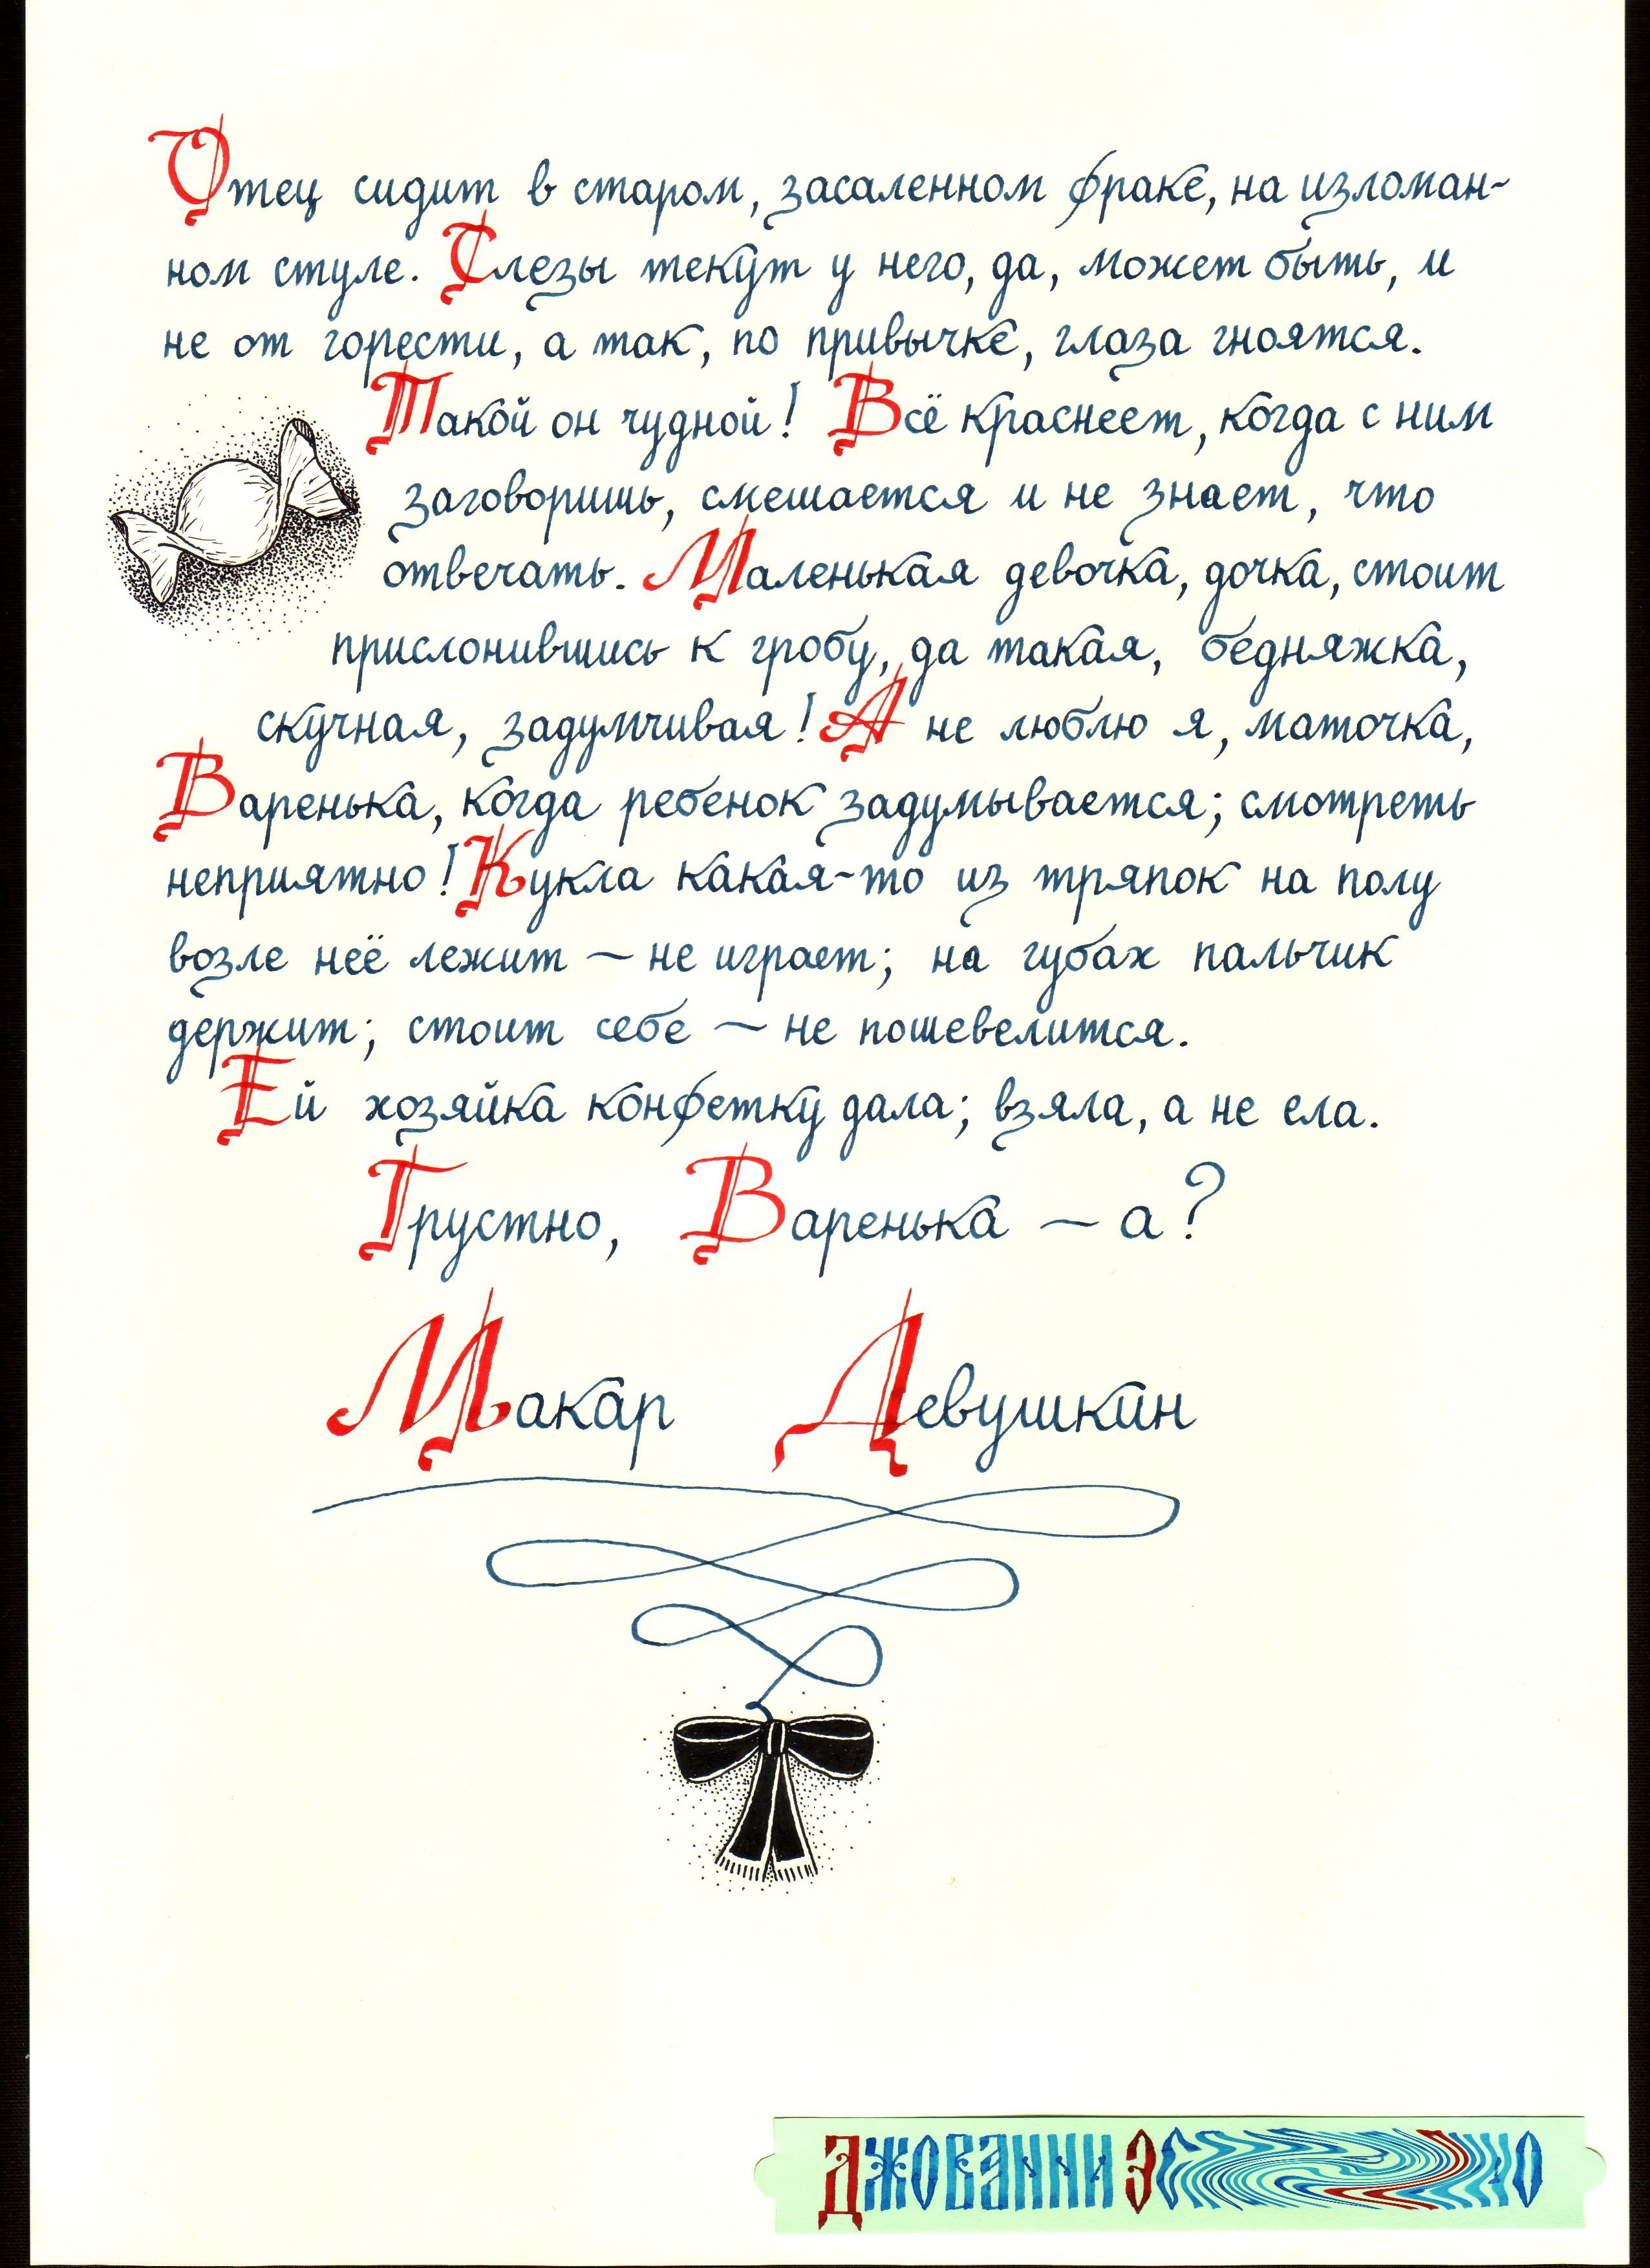 Отец сидит в старом, засаленном фраке, на изломан-
ном стуле. Слезы текут у него, да, может быть, и
не от горести, а так, по привычке, глаза гноятся.
Такой он чудной! Всё краснеет, когда с ним
заговоришь, смешается и не знает, что
отвечать. Маленькая девочка, дочка, стоит
прислонившись к гробу, да такая, бедняжка,
скучная, задумчивая! А не люблю я, маточка,
Варенька, когда ребенок задумывается; смотреть
неприятно! Кукла какая-то из тряпок на полу
возле неё лежит — не играет; на губах пальчик
держит; стоит себе — не пошевелится.
Ей хозяйка конфетку дала; взяла, а не ела.
Грустно, Варенька — а?
Макар Девушкин
Джованни